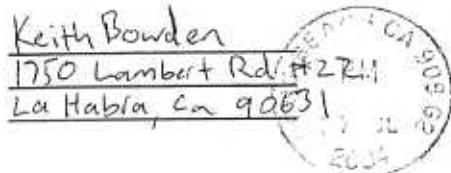 Keith Bowden
1750 Lambert Rd. #
La Habra, Ca 90631
CA 909
2004